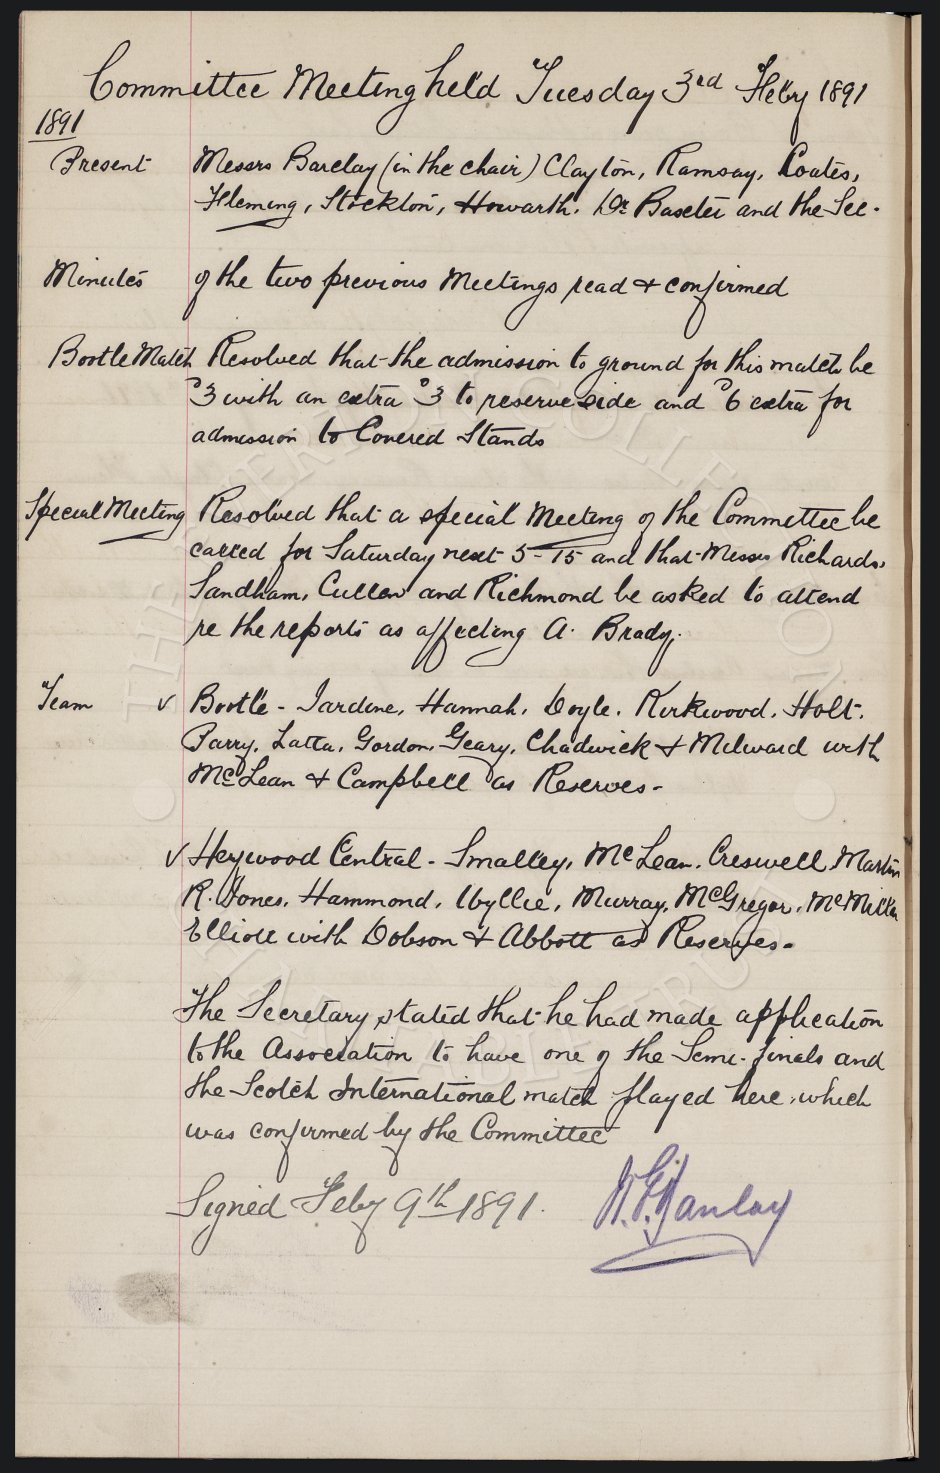 Committee Meeting held Tuesday 3rd Feby 1891
1891
Present Messrs Barclay (in the chair) Clayton, Ramsay, Coates,
Fleming, Stockton, Howarth, Dr Baxter and the Sec.
Minutes of the two previous Meetings read & confirmed
Bootle Match Resolved that the admission to ground for this match be
3 with an extra 3 to reserve side and 6 extra for
admission to Covered Stands
Special Meeting Resolved that a special Meeting of the Committee be
called for Saturday next 5-15 and that Messrs Richards,
Sandham, Cullen and Richmond be asked to attend
re the reports as affecting A. Brady.
Team ✓ Bootle - Jardine, Hannah, Doyle, Kirkwood, Holt,
Parry, Latta, Gordon, Geary, Chadwick & Milward with
McLean & Campbell as Reserves -
✓ Heywood Central - Smalley, McLean, Creswell, Martin
R. Jones, Hammond, Wyllie, Murray, McGregor, McMillan
Elliott with Dobson & Abbott as Reserves -
The Secretary stated that he had made application
to the Association to have one of the Semi-finals and
the Scotch International match played here, which
was confirmed by the Committee
Signed Feby 9th 1891.
THE EVERTON COLLECTION
CHARITABLE TRUST